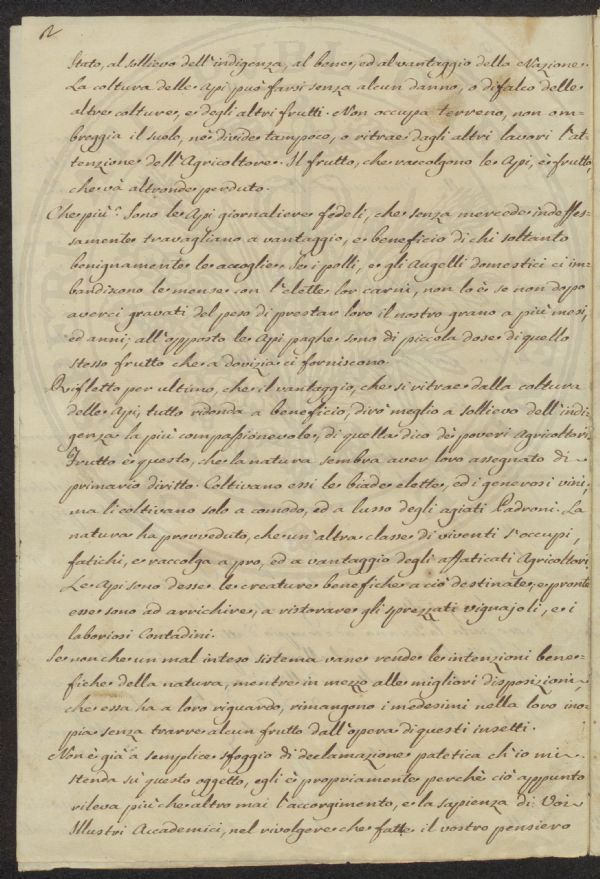 2
Stato, al sollievo dell'indigenza, al bene, ed al vantaggio della Nazione.
La coltura delle Api può farsi senza alcun danno, o difalco delle
altre colture, e degli altri frutti. Non occupa terreno, non om-
breggia il suolo, nè divide tampoco, o ritrae dagli altri lavori l'at-
tenzione dell'Agricoltore. Il frutto, che raccolgono le Api, è frutto,
che và altronde perduto.
Che più? Sono le Api giornaliere fedeli, che senza mercede indefes-
samente travagliano a vantaggio, e beneficio di chi soltanto
benignamente le accoglie. Se i polli, e gli Augelli domestici ci im-
bandiscono le mense con l'elette lor carni, non lo è se non dopo
averci gravati del peso di prestar loro il nostro grano a più mesi,
ed anni; all'opposto le Api paghe sono di piccola dose di quello
stesso frutto che a dovizia ci forniscono.
Rifletto per ultimo, che il vantaggio, che si ritrae dalla coltura
delle Api, tutto ridonda a beneficio, dirò meglio a sollievo dell'indi-
genza la più compassionevole, di quella dico dè poveri Agricoltori.
Frutto è questo, che la natura sembra aver loro assegnato di
primario diritto. Coltivano essi le biade elette, ed i generosi vini,
ma li coltivano solo a comodo, ed a lusso degli agiati Padroni. La
natura ha provveduto, che un'altra classe di viventi s'occupi,
fatichi, e raccolga a pro, ed a vantaggio degli affaticati Agricoltori.
Le Api sono desse le creature benefiche a ciò destinate, e pronte
esse sono ad arrichire, a ristorare gli sprezzati vignajoli, e i
laboriosi Contadini.
Se non che un mal inteso sistema vane rende le intenzioni bene-
fiche della natura, mentre in mezzo alle migliori disposizioni,
che essa ha a loro riguardo, rimangono i medesimi nella loro ino-
pia senza trarre alcun frutto dall'opera di questi insetti.
Non è già a semplice sfoggio di declamazione patetica ch'io mi
stenda sù questo oggetto, egli è propriamente perchè ciò appunto
rileva più che altro mai l'accorgimento, e la sapienza di Voi
Illustri Accademici, nel rivolgere che fatte il vostro pensiero